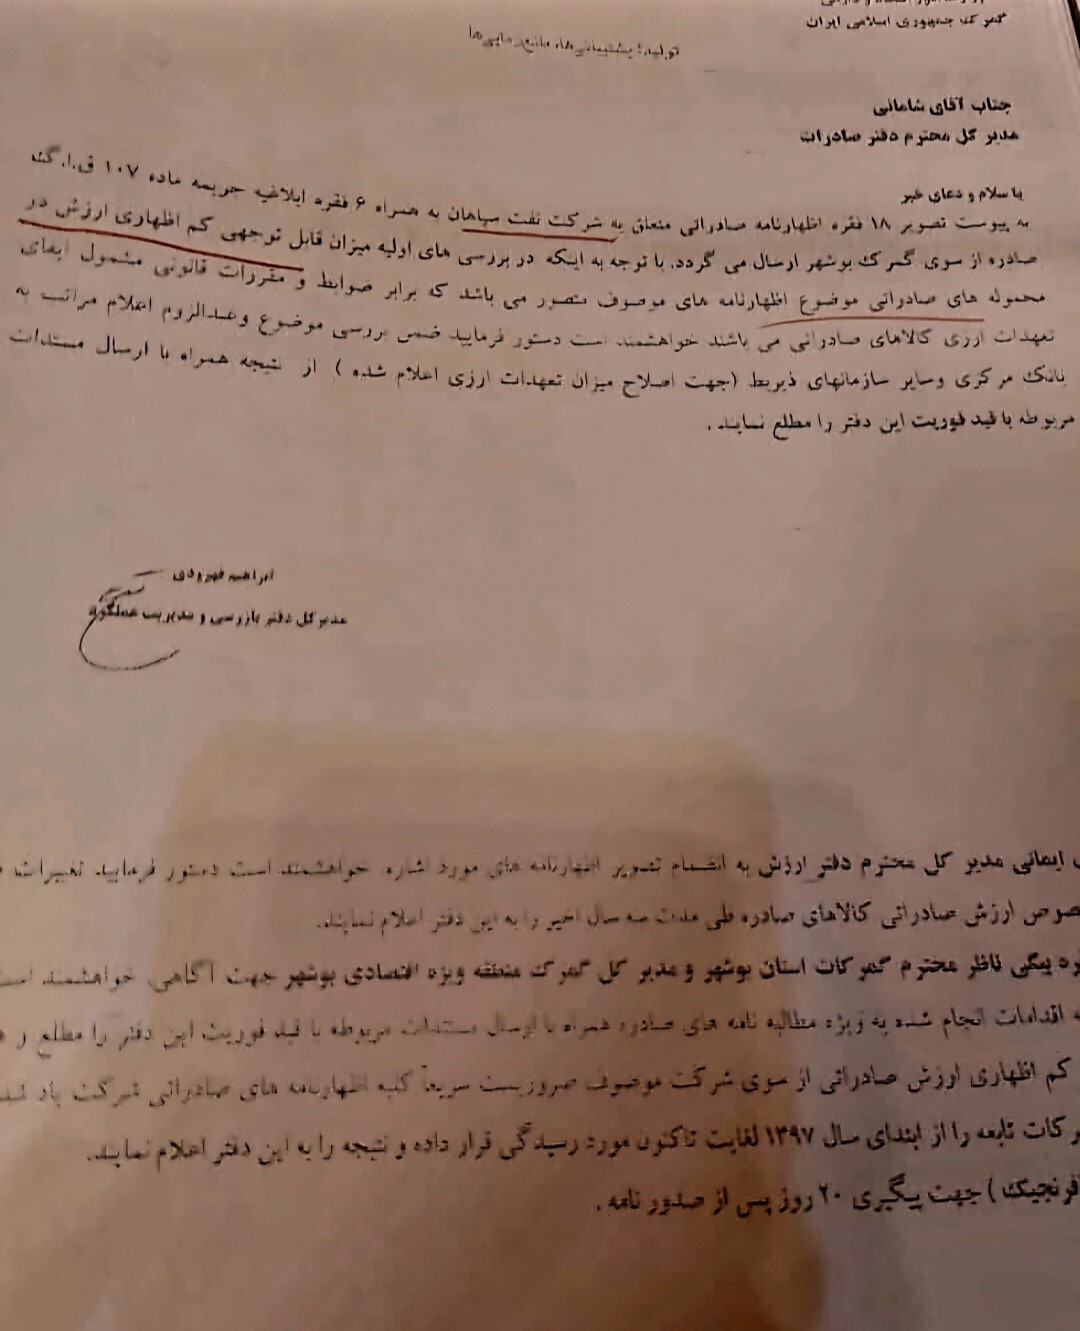 گمرک جمهوری اسلامی ایران
جناب آقای شامانی
مدیر کل محترم دفتر صادرات
با سلام و دعای خیر
به پیوست تصویر ۱۸ فقره اظهارنامه صادراتی متعلق به شرکت نفت سپاهان به همراه ۶ فقره ابلاغیه جریمه ماده ۱۰۷ ق.ا.گ
صادره از سوی گمرک بوشهر ارسال می گردد. با توجه به اینکه در بررسی های اولیه میزان قابل توجهی کم اظهاری ارزش در
محموله های صادراتی موضوع اظهارنامه های موصوف متصور می باشد که برابر ضوابط و مقررات قانونی مشمول ایفای
تعهدات ارزی کالاهای صادراتی می باشند خواهشمند است دستور فرمایید ضمن بررسی موضوع و عندالزوم اعلام مراتب به
بانک مرکزی وسایر سازمانهای ذیربط (جهت اصلاح میزان تعهدات ارزی اعلام شده ) از نتیجه همراه با ارسال مستندات
مربوطه با قید فوریت این دفتر را مطلع نمایند .
مدیر کل دفتر بازرسی و مدیریت عملکرد
ایمانی مدیر کل محترم دفتر ارزش به انضمام تصویر اظهارنامه های مورد اشاره. خواهشمند است دستور فرمایید تغییرات
ارزش صادراتی کالاهای صادره طی مدت سه سال اخیر را به این دفتر اعلام نمایند.
بیگی ناظر محترم گمرکات استان بوشهر و مدیر کل گمرک منطقه ویژه اقتصادی بوشهر جهت آگاهی. خواهشمند است
اقدامات انجام شده به ویژه مطالبه نامه های صادره همراه با ارسال مستندات مربوطه با قید فوریت این دفتر را مطلع و
کم اظهاری ارزش صادراتی از سوی شرکت موصوف ضروریست سریعاً کلیه اظهارنامه های صادراتی شرکت یاد شده
تابعه را از ابتدای سال ۱۳۹۷ لغایت تاکنون مورد رسیدگی قرار داده و نتیجه را به این دفتر اعلام نمایند.
) جهت پیگیری ۲۰ روز پس از صدور نامه .